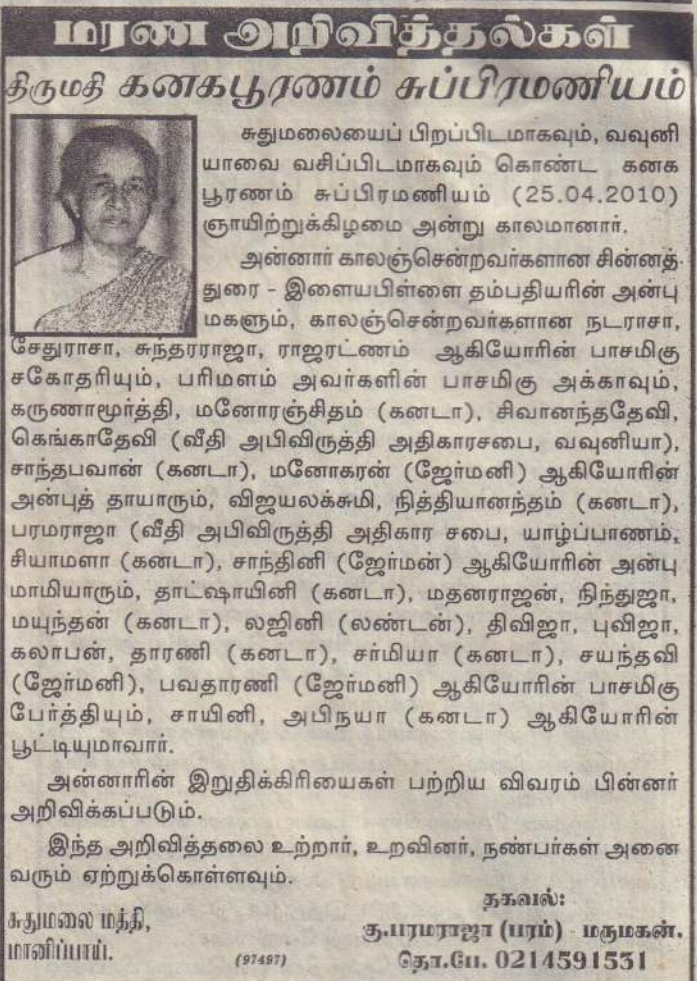 மரண அறிவித்தல்கள்
திருமதி கனகபூரணம் சுப்பிரமணியம்
சுதுமலையைப் பிறப்பிடமாகவும், வவுனி
யாவை வசிப்பிடமாகவும் கொண்ட கனக
பூரணம் சுப்பிரமணியம் (25.04.2010)
ஞாயிற்றுக்கிழமை அன்று காலமானார்.
அன்னார் காலஞ்சென்றவர்களான சின்னத்
துரை - இளையபிள்ளை தம்பதியரின் அன்பு
மகளும், காலஞ்சென்றவர்களான நடராசா,
சேதுராசா, சுந்தரராஜா, ராஜரட்ணம் ஆகியோரின் பாசமிகு
சகோதரியும், பரிமளம் அவர்களின் பாசமிகு அக்காவும்,
கருணாமூர்த்தி, மனோரஞ்சிதம் (கனடா), சிவானந்ததேவி,
கெங்காதேவி (வீதி அபிவிருத்தி அதிகாரசபை, வவுனியா),
சாந்தபவான் (கனடா), மனோகரன் (ஜேர்மனி) ஆகியோரின்
அன்புத் தாயாரும், விஜயலக்சுமி, நித்தியானந்தம் (கனடா),
பரமராஜா (வீதி அபிவிருத்தி அதிகார சபை, யாழ்ப்பாணம்,
சியாமளா (கனடா), சாந்தினி (ஜேர்மன்) ஆகியோரின் அன்பு
மாமியாரும், தாட்ஷாயினி (கனடா), மதனராஜன், நிந்துஜா,
மயுந்தன் (கனடா), லஜினி (லண்டன்), திவிஜா, புவிஜா,
கலாபன், தாரணி (கனடா), சர்மியா (கனடா), சயந்தவி
(ஜேர்மனி), பவதாரணி (ஜேர்மனி) ஆகியோரின் பாசமிகு
பேர்த்தியும், சாயினி, அபிநயா (கனடா) ஆகியோரின்
பூட்டியுமாவார்.
அன்னாரின் இறுதிக்கிரியைகள் பற்றிய விவரம் பின்னர்
அறிவிக்கப்படும்.
இந்த அறிவித்தலை உற்றார், உறவினர், நண்பர்கள் அனை
வரும் ஏற்றுக்கொள்ளவும்.
தகவல்:
சுதுமலை மத்தி,
கு.பரமராஜா (பரம்) - மருமகன்.
மானிப்பாய்.
(97497)
தொ.பே. 0214591531